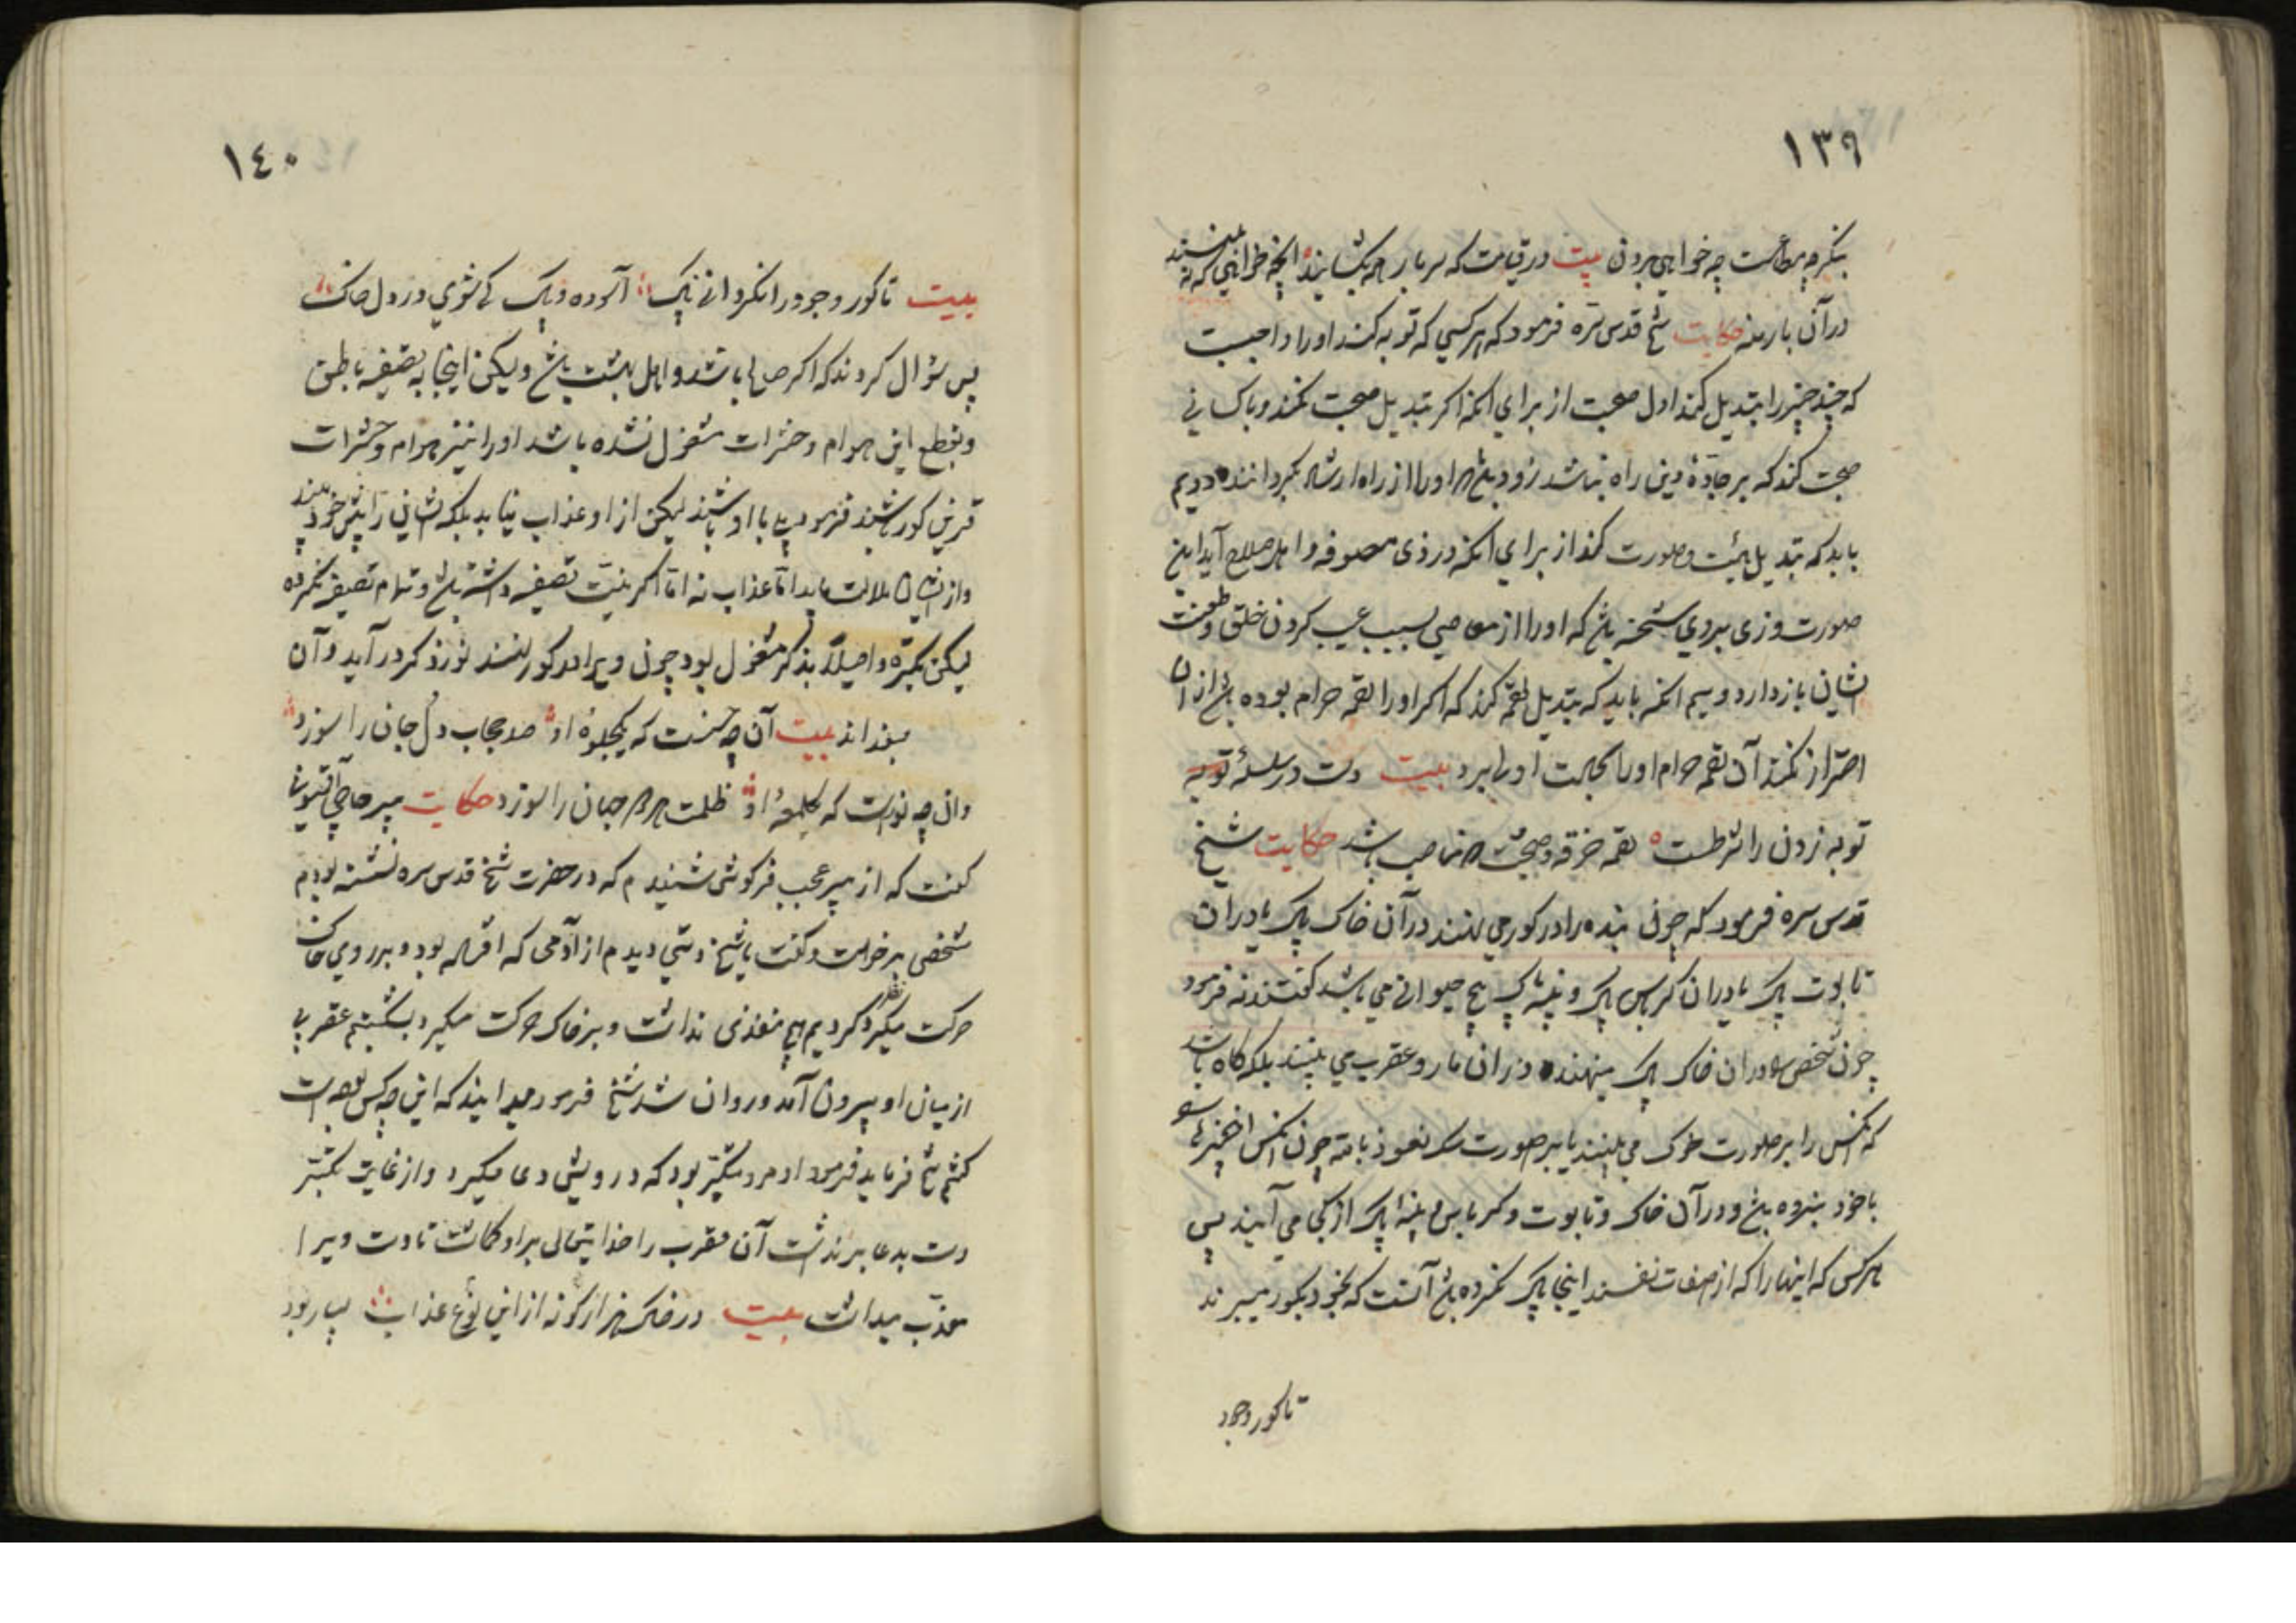 ١٣٩
بنکر چه خواهی بردن بیت در قیامت که سر بار همه بکشایند
در آن بار منه حکایت شیخ قدس سره فرمود که هر کسی که توبه کند او را واجبست
که چند چیز را تبدیل کند اول صحبت از برای آنکه اکر تبدیل صحبت نکند و با کسانی
صحبت کند که بر جادۀ دین راه نباشد زود باشد که او را از راه ارشاد بگردانند دویم
باید که تبدیل هیئت و صورت کند از برای آنکه در زی متصوفه و اهل صلاح آید این
صورت و زی بروی شحنه باشد که او را از معاصی بسبب عیب کردن خلق و طعنت
ایشان باز دارد و سیم آنکه باید که تبدیل لقمه کند که اکر او را لقمه حرام بوده باشد از آن
احتراز نکند آن لقمه حرام او را بحالت اول برد بیت دست در سلسلۀ توبه
توبه زدن را شرطست لقمه خرقه و صحبت شد حکایت شیخ
قدس سره فرمود که چون بنده را در کور می نهند در آن خاک پاک یا در آن
تابوت پاک یا در آن کرباس پاک و پنبه پاک هیچ حیوانی می باشد کفتند نه فرمود
چون شخص را در آن خاک پاک مینهند در آن مار و عقرب می بینند بلکه کاه باشد
که آنکس را بر صورت خوک می بینند یا بر صورت سک نعوذ بالله چون آنکس این چیزها
با خود نبرده باشد و در آن خاک و تابوت و کرباس و پنبه پاک از کجا می آیند پس
هر کس که اینها را که از صفات نفسند اینجا پاک نکرده باشد آنست که بخود بکور میبرند
تا کور وجود
١٤٠
بیت تا کور وجود را نکردانی پاک آسوده و پاک کی شوی در دل خاک
پس سؤال کردند که اکر صالح باشد و اهل بهشت باشد ولیکن اینجا به تصفیه باطن
و بقطع این هوام و حشرات مشغول نشده باشد او را نیز هوام و حشرات
قرین کور باشند فرمود بلی با او باشند لیکن از او عذاب نیابد بلکه ایشان را پیش خود بیند
و از ایشان ملالت یابد اما عذاب نه اما اکر بنیت تصفیه داشته باشد و تمام تصفیه نکرده
لیکن بکرة و اصیلا بذکر مشغول بود چون ویرا در کور نهند نور ذکر در آید و آن
بسوزاند بیت آن چه حسنست که یکجلوۀ او صد حجاب دل و جان را سوزد
وان چه نورست که یک لمعۀ او ظلمت هر دو جهان را سوزد حکایت پیر حاجی
کفت که از پیر عجب فرکوشی شنیدم که در حضرت شیخ قدس سره نشسته بودم
شخصی برخواست و کفت یا شیخ دستی دیدم از آدمی که افتاده بود و بر روی خاک
حرکت میکرد نظر کردیم هیچ منفذی نداشت و بر خاک حرکت میکرد بشکستیم عقربی
از میان او بیرون آمد و روان شد شیخ فرمود میدانید که این چه کس بوده است
کفتم شیخ فرماید فرمود او مرد متکبر بود که درویشی دعا میکرد و از غایت تکبر
دست بدعا بر نداشت آن عقرب را خدایتعالی برو کماشت تا دست ویرا
معذب میداشت بیت در خاک هزار کونه از این نوع عذاب بسیار بود